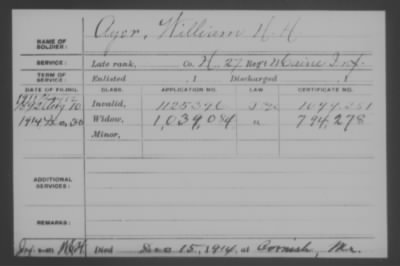 NAME OF SOLDIER: Ayer, William H. H.
SERVICE: Late rank, Co. H, 27 Reg't Maine Inf.
TERM OF SERVICE: Enlisted , 1 Discharged , 1
DATE OF FILING. CLASS. APPLICATION NO. LAW. CERTIFICATE NO.
Aug 10 Invalid,
1914 Dec. 30 Widow, 1,039,084 " 794,278
Minor,
ADDITIONAL SERVICES:
REMARKS:
Died Dec 15, 1914, at Cornish, Me.